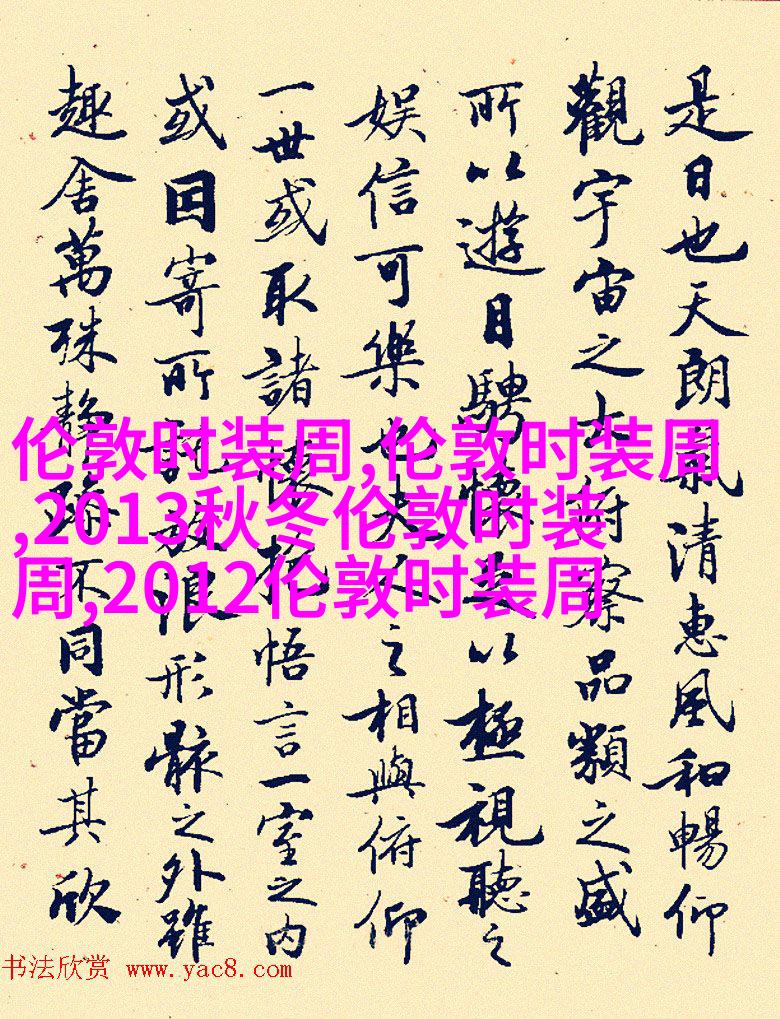 是日也天朗氣清惠風和暢仰
觀宇宙之大俯察品類之盛
所以遊目騁懷足以極視聽之
娛信可樂也夫人之相與俯仰
一世或取諸懷抱悟言一室之內
或因寄所託放浪形骸之外雖
趣舍萬殊靜躁不同當其欣
伦敦时装周,伦敦时装周
,2013秋冬伦敦时装
周,2012伦敦时装周
书法欣赏 www.yac8.com